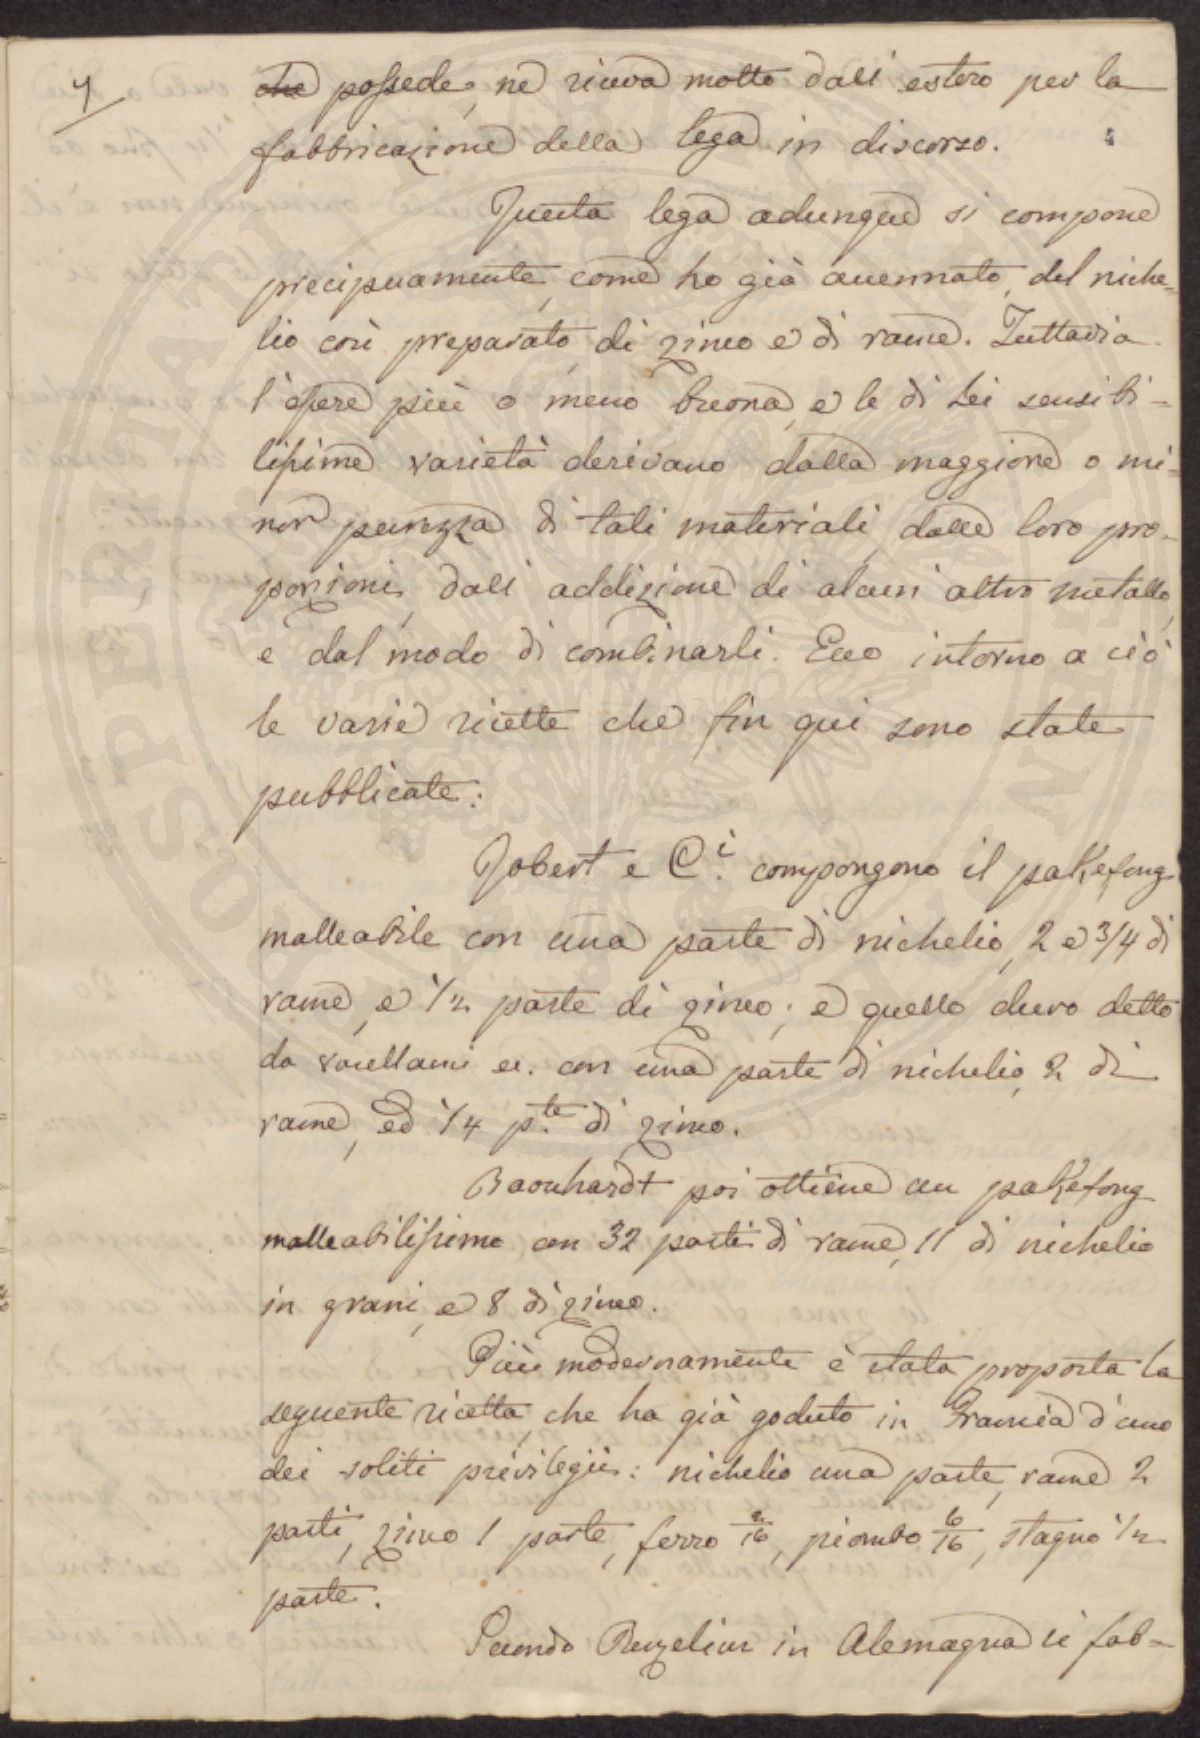 4
che possede, ne riceva molto dall'estero per la
fabbricazione della lega in discorso.
Questa lega adunque si compone
precipuamente, come ho già accennato, del niche=
lio così preparato, di zinco e di rame. Tuttavia
l'essere più o meno buona, e le di lei sensibi=
lissime varietà derivano dalla maggiore o mi=
nor purezza di tali materiali, dalle loro pro=
porzioni, dall'addizione di alcun altro metallo,
e dal modo di combinarli. Ecco intorno a ciò
le varie ricette che fin qui sono state
pubblicate:
Jobert e C.i compongono il pakefong
malleabile con una parte di nichelio, 2 e 3/4 di
rame, e 1/2 parte di zinco; e quello duro detto
da vasellami ec. con una parte di nichelio, 2 di
rame, ed 1/4 p.te di zinco.
poi ottiene un pakefong
malleabilissimo con 32 parti di rame, 11 di nichelio
in grani, e 8 di zinco.
Più modernamente è stata proposta la
seguente ricetta, che ha già goduto in Francia d'uno
dei soliti privilegii: nichelio una parte, rame 2
parti, zinco 1 parte, ferro 2/16, piombo 6/16, stagno 1/2
parte.
Secondo Berzelius in Alemagna si fab=
SPERIMENTA